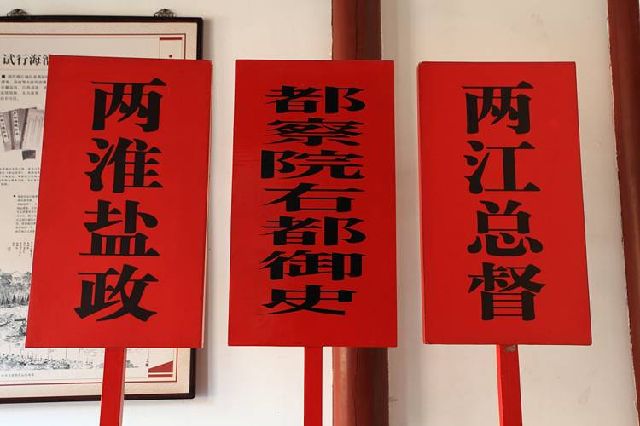 试行海
两淮盐政
都察院右都御史
两江总督